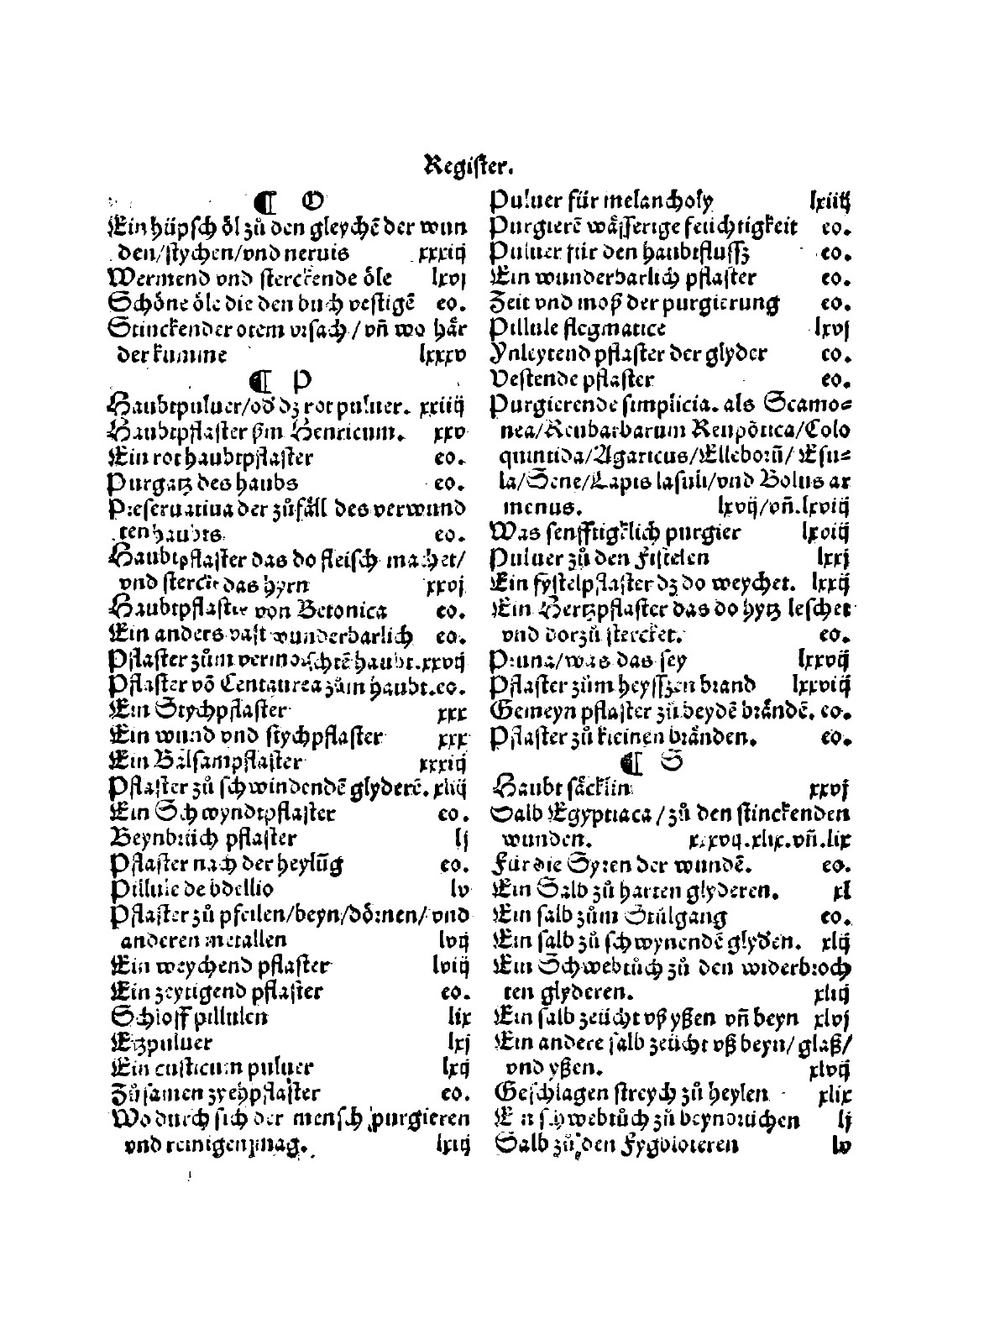 Register.
¶ O
Ein hüpsch öl zů den gleychē der wun
den/stychen/vnd neruis xxxiij
Wermend vnd sterckende öle lxvj
Schöne öle die den buch vestigē eo.
Stinckender otem vrsach/vñ wo här
der kumme lxxxv
¶ P
Haubtpuluer/od dz rot puluer. xxiiij
Haubtpflaster ßm Henricum. xxv
Ein rot haubtpflaster eo.
Purgatz des haubs eo.
Preseruatiua der zůfäll des verwund
ten haubts eo.
Haubtpflaster das do fleisch machet/
vnd sterckt das hyrn xxvj
Haubtpflaster von Betonica eo.
Ein anders vast wunderbarlich eo.
Pflaster zům vermorschtē haubt. xxvij
Pflaster vō Centaurea zům haubt. eo.
Ein Stychpflaster xxx
Ein wund vnd stychpflaster xxx
Ein Balsampflaster xxxiij
Pflaster zů schwindendē glyderē. xliij
Ein Schwyndtpflaster eo.
Beynbrüch pflaster lj
Pflaster nach der heylūg eo.
Pillule de bdellio lv
Pflaster zů pfeilen/beyn/dörnen/vnd
anderen metallen lvij
Ein weychend pflaster lviij
Ein zeytigend pflaster eo.
Schloff pillulen lix
Etzpuluer lxj
Ein custicum puluer lxij
Zůsamen zyehpflaster eo.
Wo durch sich der mensch purgieren
vnd reinigen mag. lxiij
Puluer für melancholy lxiiij
Purgierē wässerige feüchtigkeit eo.
Puluer für den haubtflussz eo.
Ein wunderbarlich pflaster eo.
Zeit vnd moß der purgierung eo.
Pillule flegmatice lxvj
Ynleytend pflaster der glyder eo.
Vestende pflaster eo.
Purgierende simplicia. als Scamo⸗
nea/Reubarbarum Reupōtica/Colo
quintida/Agaricus/Elleborū/Esu⸗
la/Sene/Lapis lasuli/vnd Bolus ar
menus. lxvij/vñ.lxviij
Was senfftigklich purgier lxviij
Puluer zů den Fistelen lxxj
Ein fystelpflaster dz do weychet. lxxij
Ein Hertzpflaster das do hytz leschet
vnd dorzů stercket. eo.
Pruna/was das sey lxxvij
Pflaster zům heysszen brand lxxviij
Gemeyn pflaster zů beydē brändē. eo.
Pflaster zů kleinen bränden. eo.
¶ S
Haubt säcklin xxvj
Salb Egyptiaca/zů den stinckenden
wunden. xxxvij.xlix.vñ.lix
Für die Syren der wundē. eo.
Ein Salb zů harten glyderen. xl
Ein salb zům Stůlgang eo.
Ein salb zů schwynendē glydē. xlij
Ein Schwebtůch zů den widerbroch
ten glyderen. xliij
Ein salb zeücht vß yßen vñ beyn xlvj
Ein andere salb zeücht vß beyn/glaß/
vnd yßen. xlvij
Geschlagen streych zů heylen xlix
Ein schwebtůch zů beynbrüchen lj
Salb zů den Fygbloteren lv